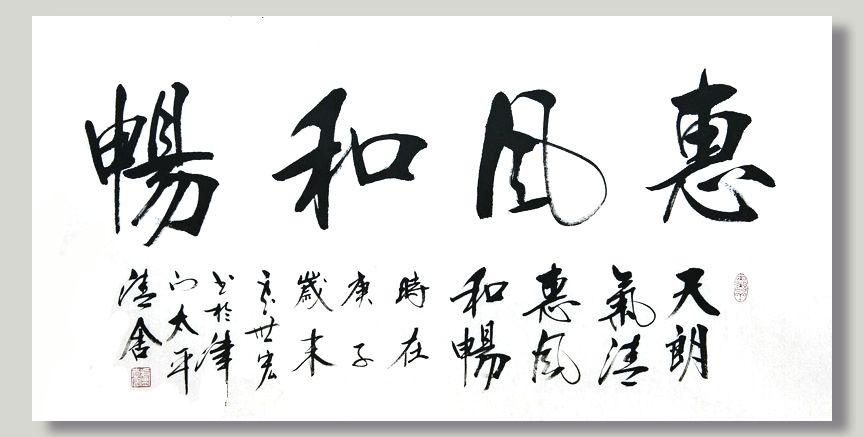 惠風和暢
天朗
氣清
惠風
和暢
時在
庚子
歲末
袁世宏
书於津
门太平
清舍